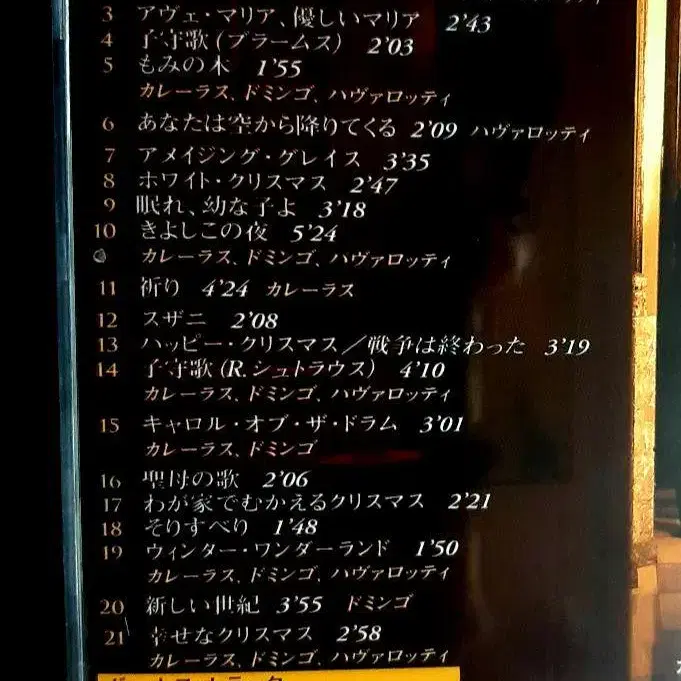 3 アヴェ・マリア、優しいマリア 2'43
4 子守歌(ブラームス) 2'03
5 もみの木 1'55
カレーラス、ドミンゴ、ハヴァロッティ
6 あなたは空から降りてくる 2'09 ハヴァロッティ
7 アメイジング・グレイス 3'35
8 ホワイト・クリスマス 2'47
9 眠れ、幼な子よ 3'18
10 きよしこの夜 5'24
カレーラス、ドミンゴ、ハヴァロッティ
11 祈り 4'24 カレーラス
12 スザニ 2'08
13 ハッピー・クリスマス/戦争は終わった 3'19
14 子守歌(R.シュトラウス) 4'10
カレーラス、ドミンゴ、ハヴァロッティ
15 キャロル・オブ・ザ・ドラム 3'01
カレーラス、ドミンゴ
16 聖母の歌 2'06
17 わが家でむかえるクリスマス 2'21
18 そりすべり 1'48
19 ウィンター・ワンダーランド 1'50
カレーラス、ドミンゴ、ハヴァロッティ
20 新しい世紀 3'55 ドミンゴ
21 幸せなクリスマス 2'58
カレーラス、ドミンゴ、ハヴァロッティ